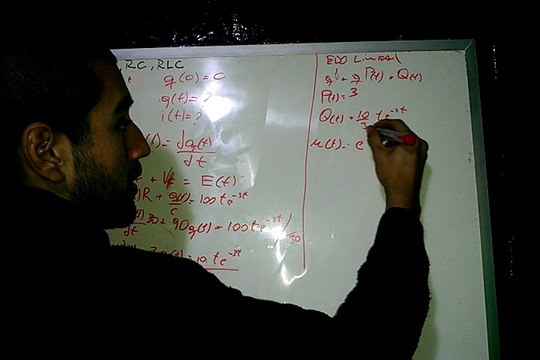 , RC, RLC
q(0) = 0
q(t) = ?
i(t) = ?
= dq(t)
dt
+ = E(t)
R + q(t) = 100te⁻³ᵗ
c
30 + 90q(t) = 100te⁻³ᵗ /
dt 30
q(t) = 10 te⁻³ᵗ
EDO Lineal
q' + q P(t) = Q(t)
P(t) = 3
Q(t) = 10 te⁻³ᵗ
3
μ(t) = e